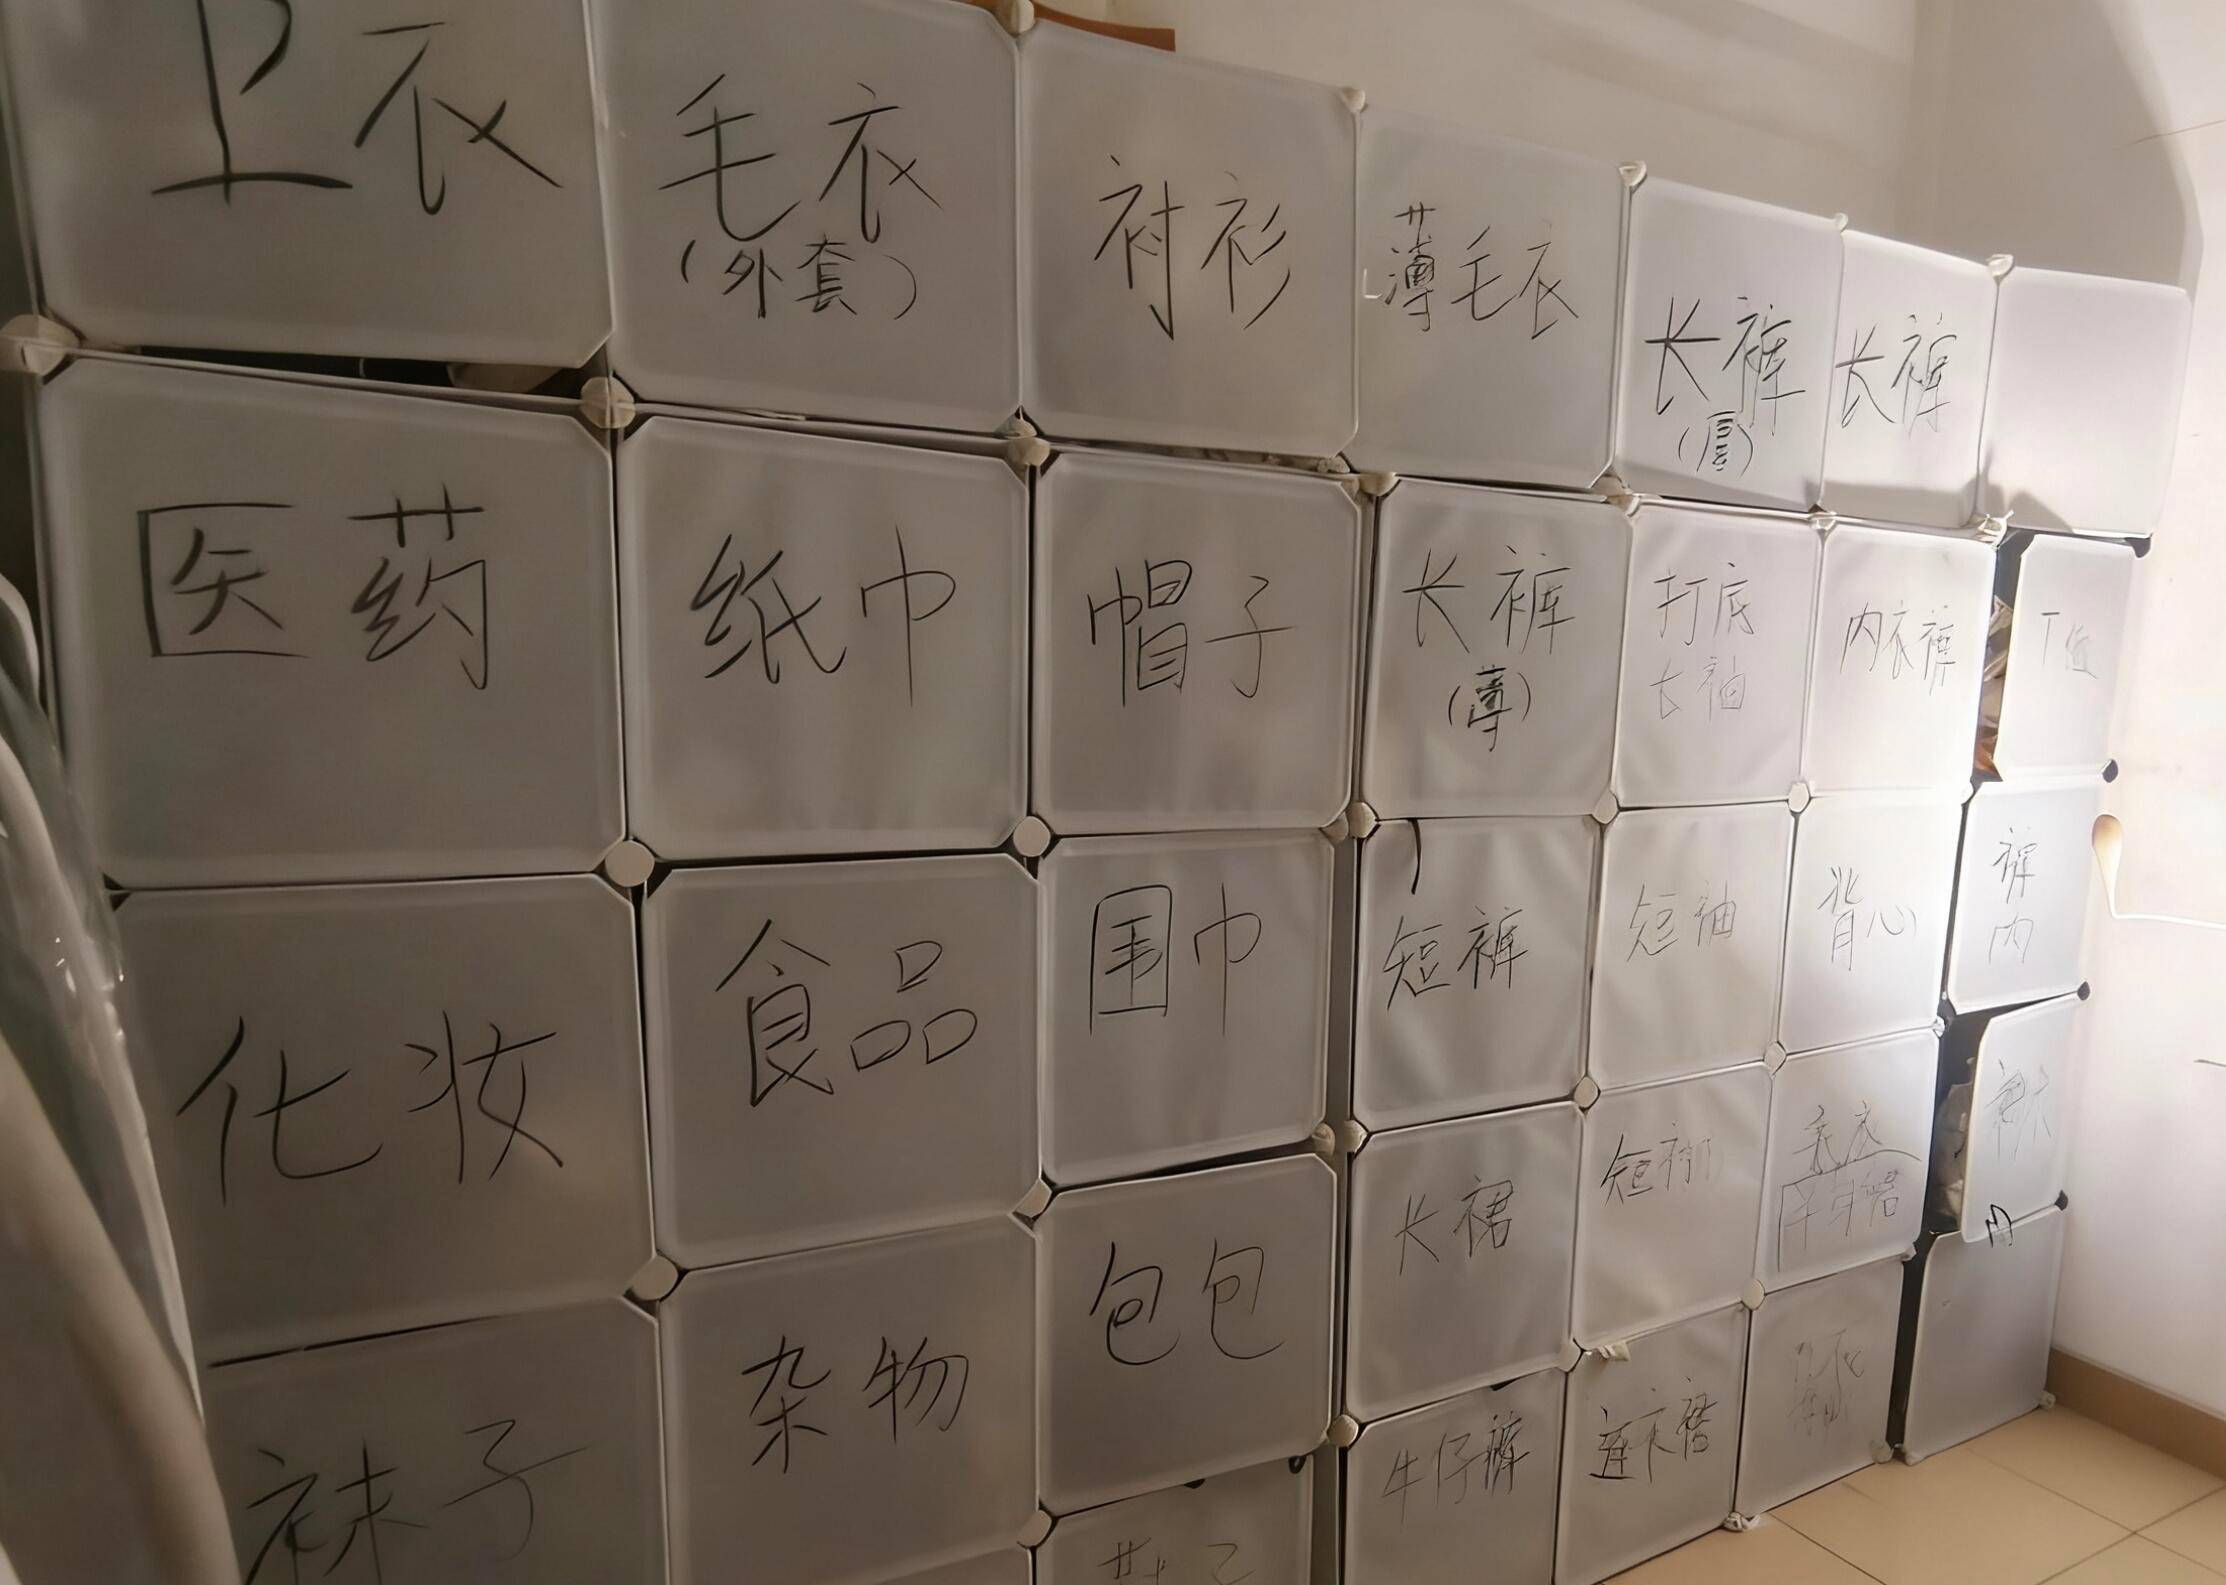 卫衣
毛衣
（外套）
衬衫
薄毛衣
长裤
（厚）
长裤
医药
纸巾
帽子
长裤
（薄）
打底
长袖
内衣裤
T恤
化妆
食品
围巾
短裤
短袖
背心
裤
内
袜子
杂物
包包
长裙
短裤
毛衣
半身裙
牛仔裤
连衣裙